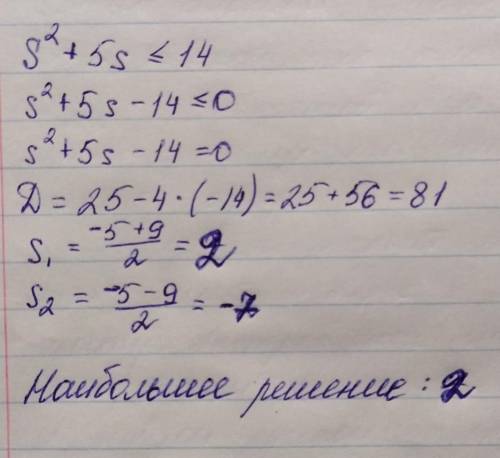 S² + 5s ≤ 14
s² + 5s - 14 ≤ 0
s² + 5s - 14 = 0
D = 25 - 4 · (-14) = 25 + 56 = 81
S₁ = (-5 + 9)/2 = 2
S₂ = (-5 - 9)/2 = -7
Наибольшее решение: 2